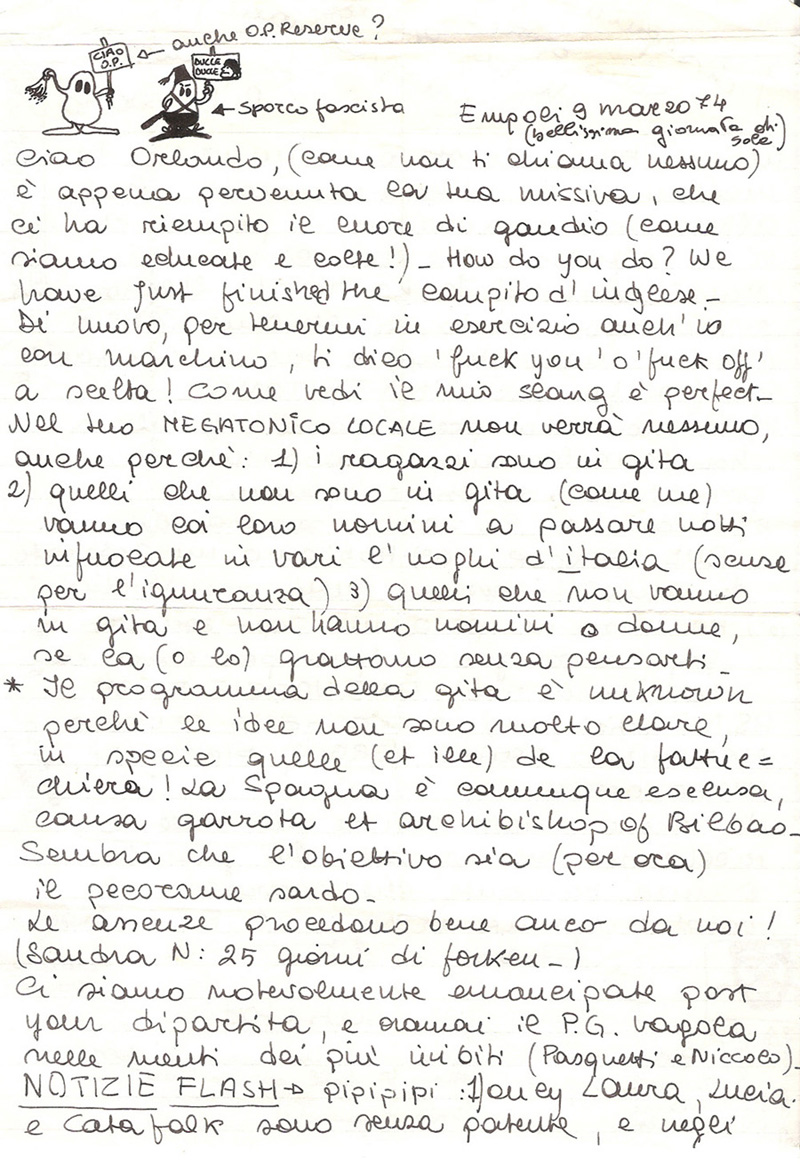 anche O.P. Reserve?
CIAO
O.P.
DUCLE
DUCLE
sporco fascista
Empoli 9 marzo 74
(bellissima giornata di
sole)
Ciao Orlando, (come non ti chiama nessuno)
è appena pervenuta la tua missiva, che
ci ha riempito il cuore di gaudio (come
siamo educate e colte!)_ How do you do? We
have just finished the compito d'inglese_
Di nuovo, per tenermi in esercizio anch'io
con marchino, ti dico 'fuck you' o 'fuck off'
a scelta! Come vedi il mio slang è perfect_
Nel tuo MEGATONICO LOCALE non verrà nessuno,
anche perchè: 1) i ragazzi sono in gita
2) quelli che non sono in gita (come me)
vanno coi loro uomini a passare notti
infuocate in vari l'uoghi d'italia (scuse
per l'ignuranza) 3) quelli che non vanno
in gita e non hanno uomini o donne,
se la (o lo) grattano senza pensarti_
* Il programma della gita è unknown
perchè le idee non sono molto clare,
in specie quelle (et ille) de la fattuc=
chiera! La Spagna è comunque esclusa,
causa garrota et archibishop of Bilbao_
Sembra che l'obiettivo sia (per ora)
il pecorame sardo_
Le assenze procedono bene anco da noi!
(Sandra N: 25 giorni di forken_)
Ci siamo notevolmente emancipate post
your dipartita, e oramai il P.G. vagola
nelle menti dei più inibiti (Pasquetti e Niccolo)_
NOTIZIE FLASH→ pipipipi: Honey Laura, Lucia.
e Catafalk sono senza patente, e negli